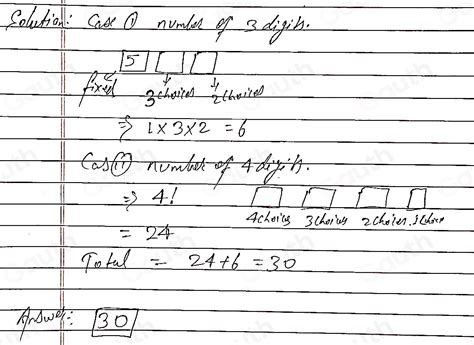 Solution: Case ① number of 3 digits.
5
fixed 3 choices 2 choices
⇒ 1×3×2 = 6
Cas ⑪ number of 4 digits.
⇒ 4!
4 choices 3 choices 2 choices 1 choice
= 24
Total = 24+6 = 30
Answer: 30